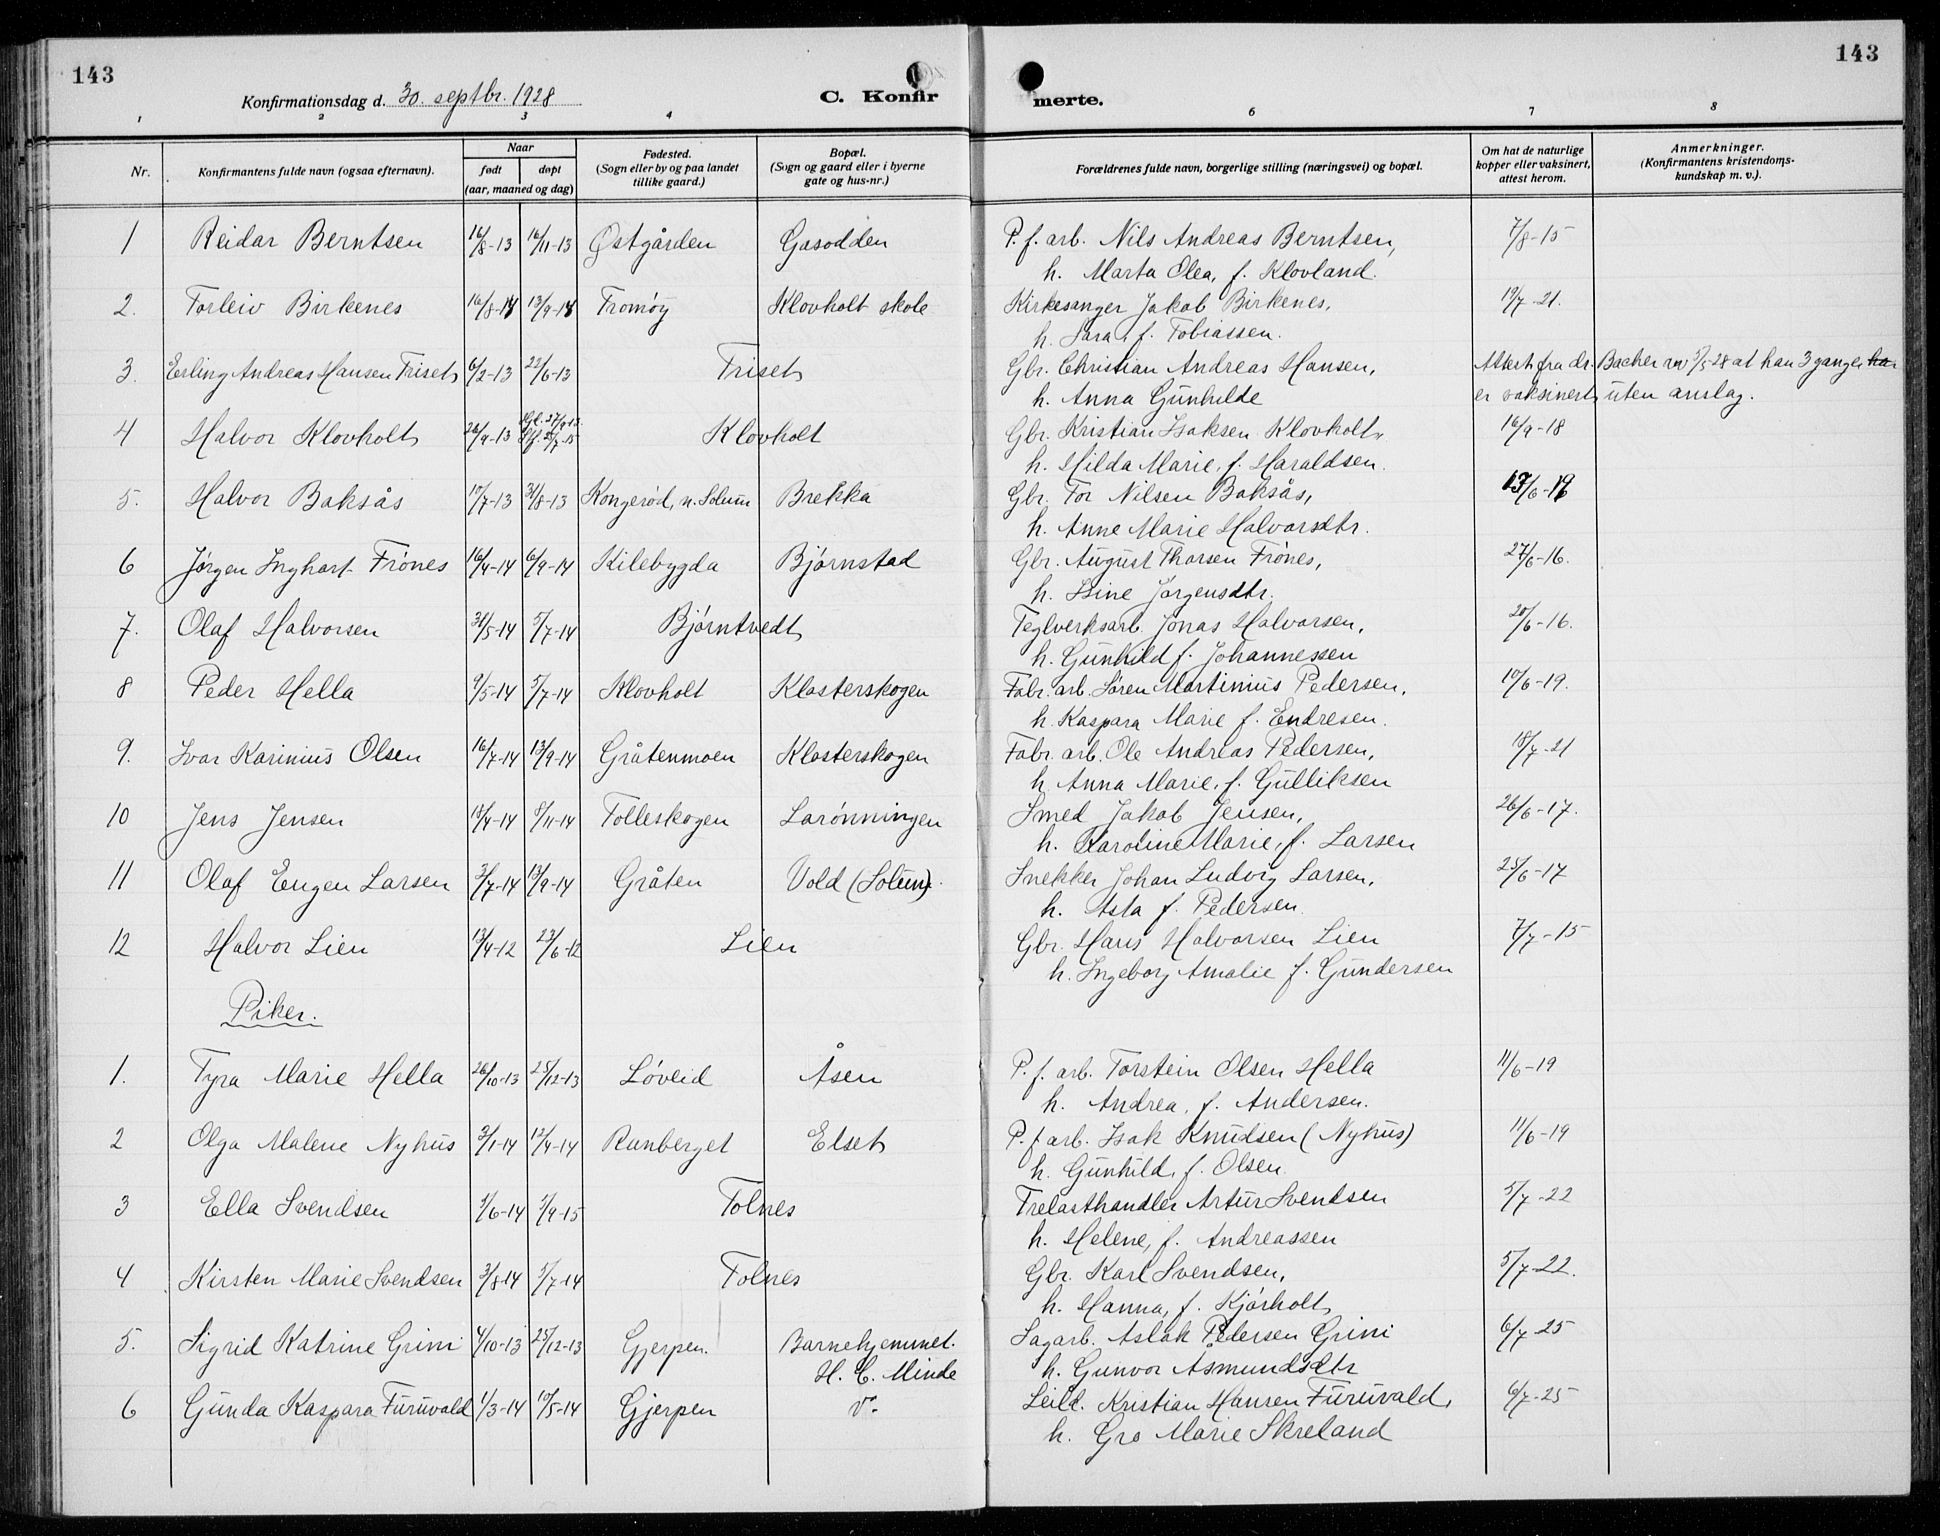 143
143
Konfirmationsdag d. 30. septbr. 1928
C. Konfir
merte.
1 2 3 4 6 7 8
Nr. Konfirmantens fulde navn (ogsaa efternavn). Naar født døpt (aar, maaned og dag) Fødested. (Sogn eller by og paa landet tillike gaard.) Bopæl. (Sogn og gaard eller i byerne gate og hus-nr.) Forældrenes fulde navn, borgerlige stilling (næringsvei) og bopæl. Om hat de naturlige kopper eller vaksinert, attest herom. Anmerkninger. (Konfirmantens kristendoms-kundskap m. v.).
1 Reidar Berntsen 16/8-13 16/11-13 Østgården Gasodden P. f. arb. Nils Andreas Berntsen, 7/8-15
h. Marta Olea, f. Klovland.
2. Torleiv Birkenes 16/8-14 13/9-14 Tromøy Klovholt skole Kirkesanger Jakob Birkenes, 19/7-21.
h. Sara f. Tobiassen.
3. Erling Andreas Hansen Triset 6/2-13 22/6-13 Triset Gbr. Christian Andreas Hansen, Attest fra dr. Bacher 5/5-28 at han 3 ganger
h. Anna Gunhilde er vaksinert uten anslag.
4 Halvor Klovholt 26/9-13 Klovholt Gbr. Kristian Isaksen Klovholt, 16/9-18
h. Hilda Marie, f. Haraldsen.
5. Halvor Baksås 10/7-13 31/8-13 Kongerød, n. Solum Brekka Gbr. Tor Nilsen Baksås, 13/6-19
h. Anne Marie Halvorsdtr.
6 Jørgen Inghart Frönes 16/4-14 6/9-14 Kilebygda Bjørnstad Gbr. August Thorsen Frönes, 27/6-16.
h. Sine Jørgensdtr.
7. Olaf Halvorsen 31/5-14 5/7-14 Bjørntvedt Teglverksarb. Jonas Halvorsen, 20/6-16.
h. Gunhild f. Johannessen
8 Peder Hella 9/5-14 5/7-14 Klovholt Klosterskogen Fabr. arb. Søren Martinius Pedersen, 10/6-19.
h. Kaspara Marie f. Endresen.
9. Ivar Karinius Olsen 16/7-14 13/9-14 Gråtenmoen Klosterskogen Fabr. arb. Ole Andreas Pedersen, 18/7-21
h. Anna Marie, f. Gulliksen
10 Jens Jensen 18/4-14 8/11-14 Tolleskogen Larønningen Smed Jakob Jensen, 26/6-17.
h. Karoline Marie, f. Larsen
11 Olaf Eugen Larsen 3/7-14 13/9-14 Gråten Vold (Solum). Snekker Johan Ludvig Larsen, 25/6-17
h. Asta f. Pedersen.
12 Halvor Lien 13/4-12 23/6-12 Lien Gbr. Hans Halvorsen Lien 7/7-15
h. Ingeborg Amalie f. Gundersen
Piker.
1. Tyra Marie Hella 26/10-13 25/12-13 Løveid Åsen P. f. arb. Torstein Olsen Hella 11/6-19
h. Andrea, f. Andersen.
2 Olga Malene Nyhus 3/1-14 12/4-14 Ranberget Elset P. f arb. Isak Knudsen (Nyhus) 11/6-19
h. Gunhild, f. Olsen.
3 Ella Svendsen 1/6-14 1/9-15 Tolnes Trelasthandler Artur Svendsen 5/7-22
h. Helene, f. Andreassen
4 Kirsten Marie Svendsen 3/8-14 5/7-14 Tolnes Gbr. Karl Svendsen, 5/7-22.
h. Hanna, f. Kjørholt
5. Sigrid Katrine Grini 4/10-13 25/12-13 Gjerpen. Barnehjemmet. Sagarb. Aslak Pedersen Grini 6/7-25
H. C. Minde h. Gunvor Asmundsdtr
6 Gunda Kaspara Furuvald 1/3-14 10/5-14 Gjerpen v. Leil. Kristian Hansen Furuvald, 6/7-25
h. Gro Marie Skreland